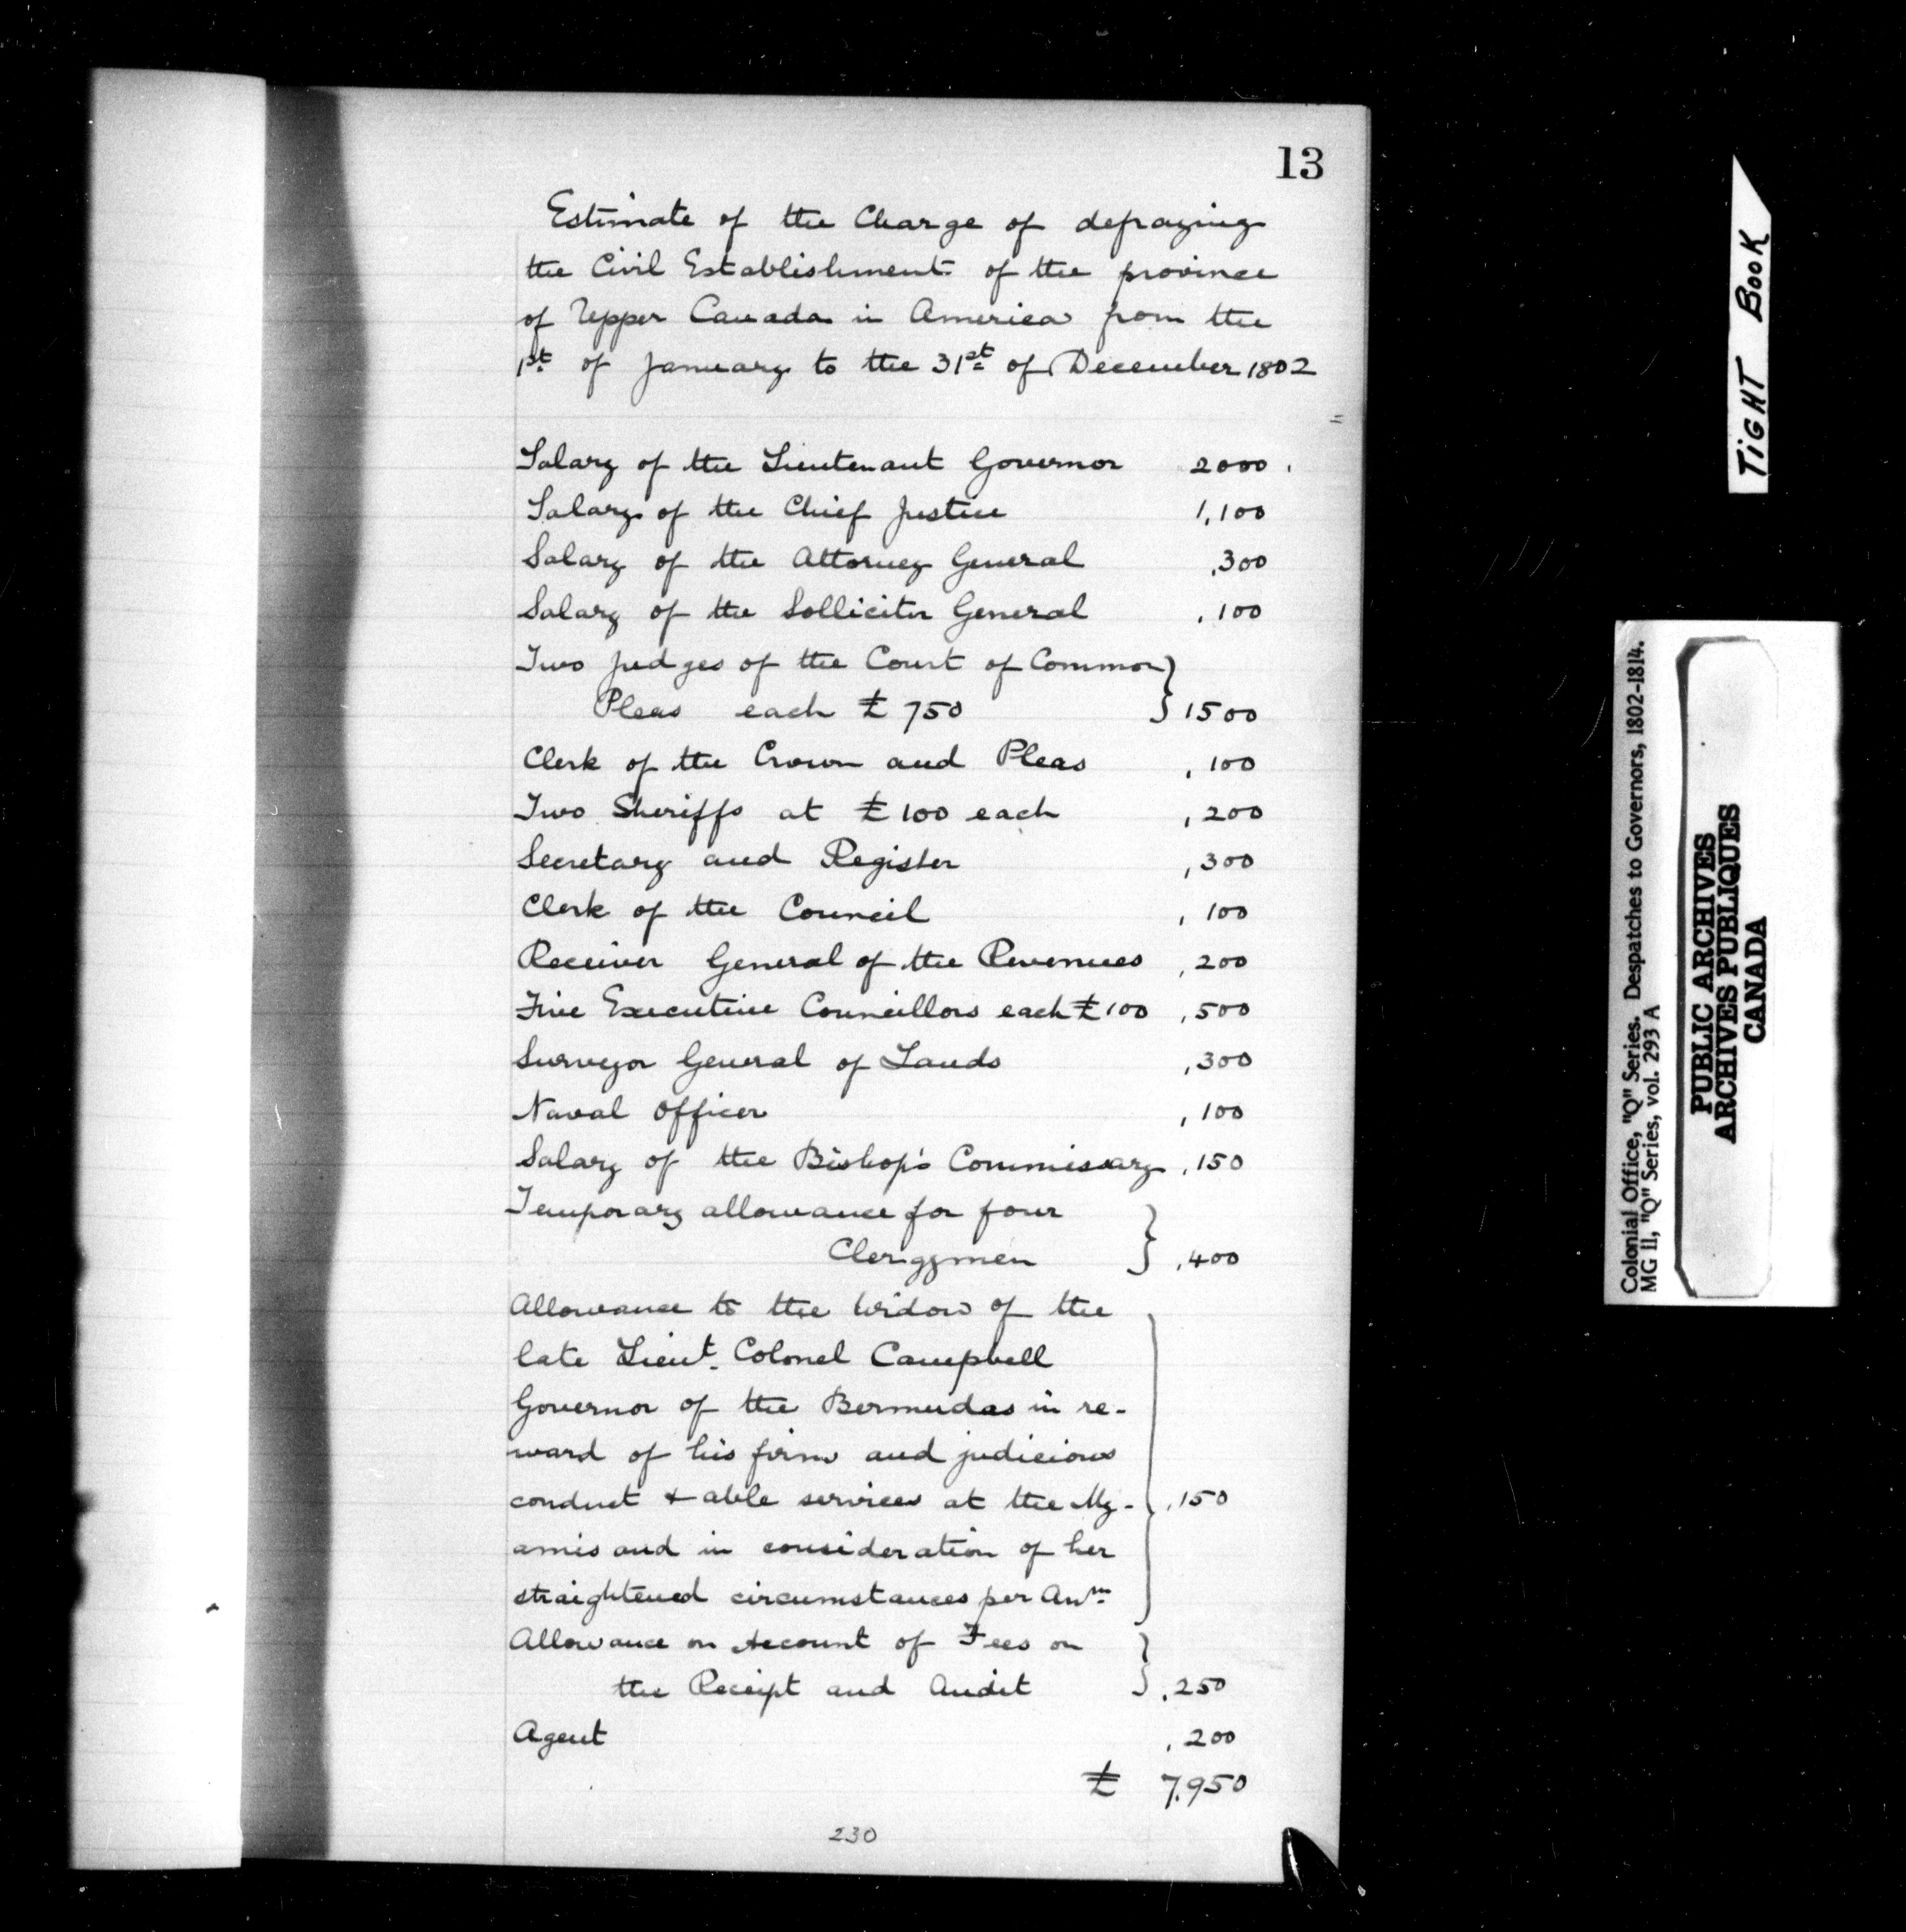 13
Estimate of the Charge of defraying
the Civil Establishment of the province
of Upper Canada in America from the
1st of January to the 31st of December 1802
Salary of the Lieutenant Governor 2000
Salary of the Chief Justice 1,100
Salary of the Attorney General ,300
Salary of the Solliciter General ,100
Two judges of the Court of Common
Pleas each £750 } 1500
Clerk of the Crown and Pleas ,100
Two Sheriffs at £100 each ,200
Secretary and Register ,300
Clerk of the Council ,100
Receiver General of the Revenues ,200
Five Executive Councillors each £100 ,500
Surveyor General of Lands ,300
Naval Officer ,100
Salary of the Bishop's Commissary ,150
Temporary allowance for four
Clergymen } ,400
Allowance to the Widow of the
late Lieut. Colonel Campbell
Governor of the Bermudas in re-
ward of his firm and judicious
conduct + able services at the My- ,150
amis and in consideration of her
straightened circumstances per Anm.
Allowance on Account of Fees on
the Receipt and Audit } ,250
Agent ,200
£ 7,950
230
TIGHT BOOK
Colonial Office, "Q" Series. Despatches to Governors, 1802-1814.
MG 11, "Q" Series, vol. 293 A
PUBLIC ARCHIVES
ARCHIVES PUBLIQUES
CANADA